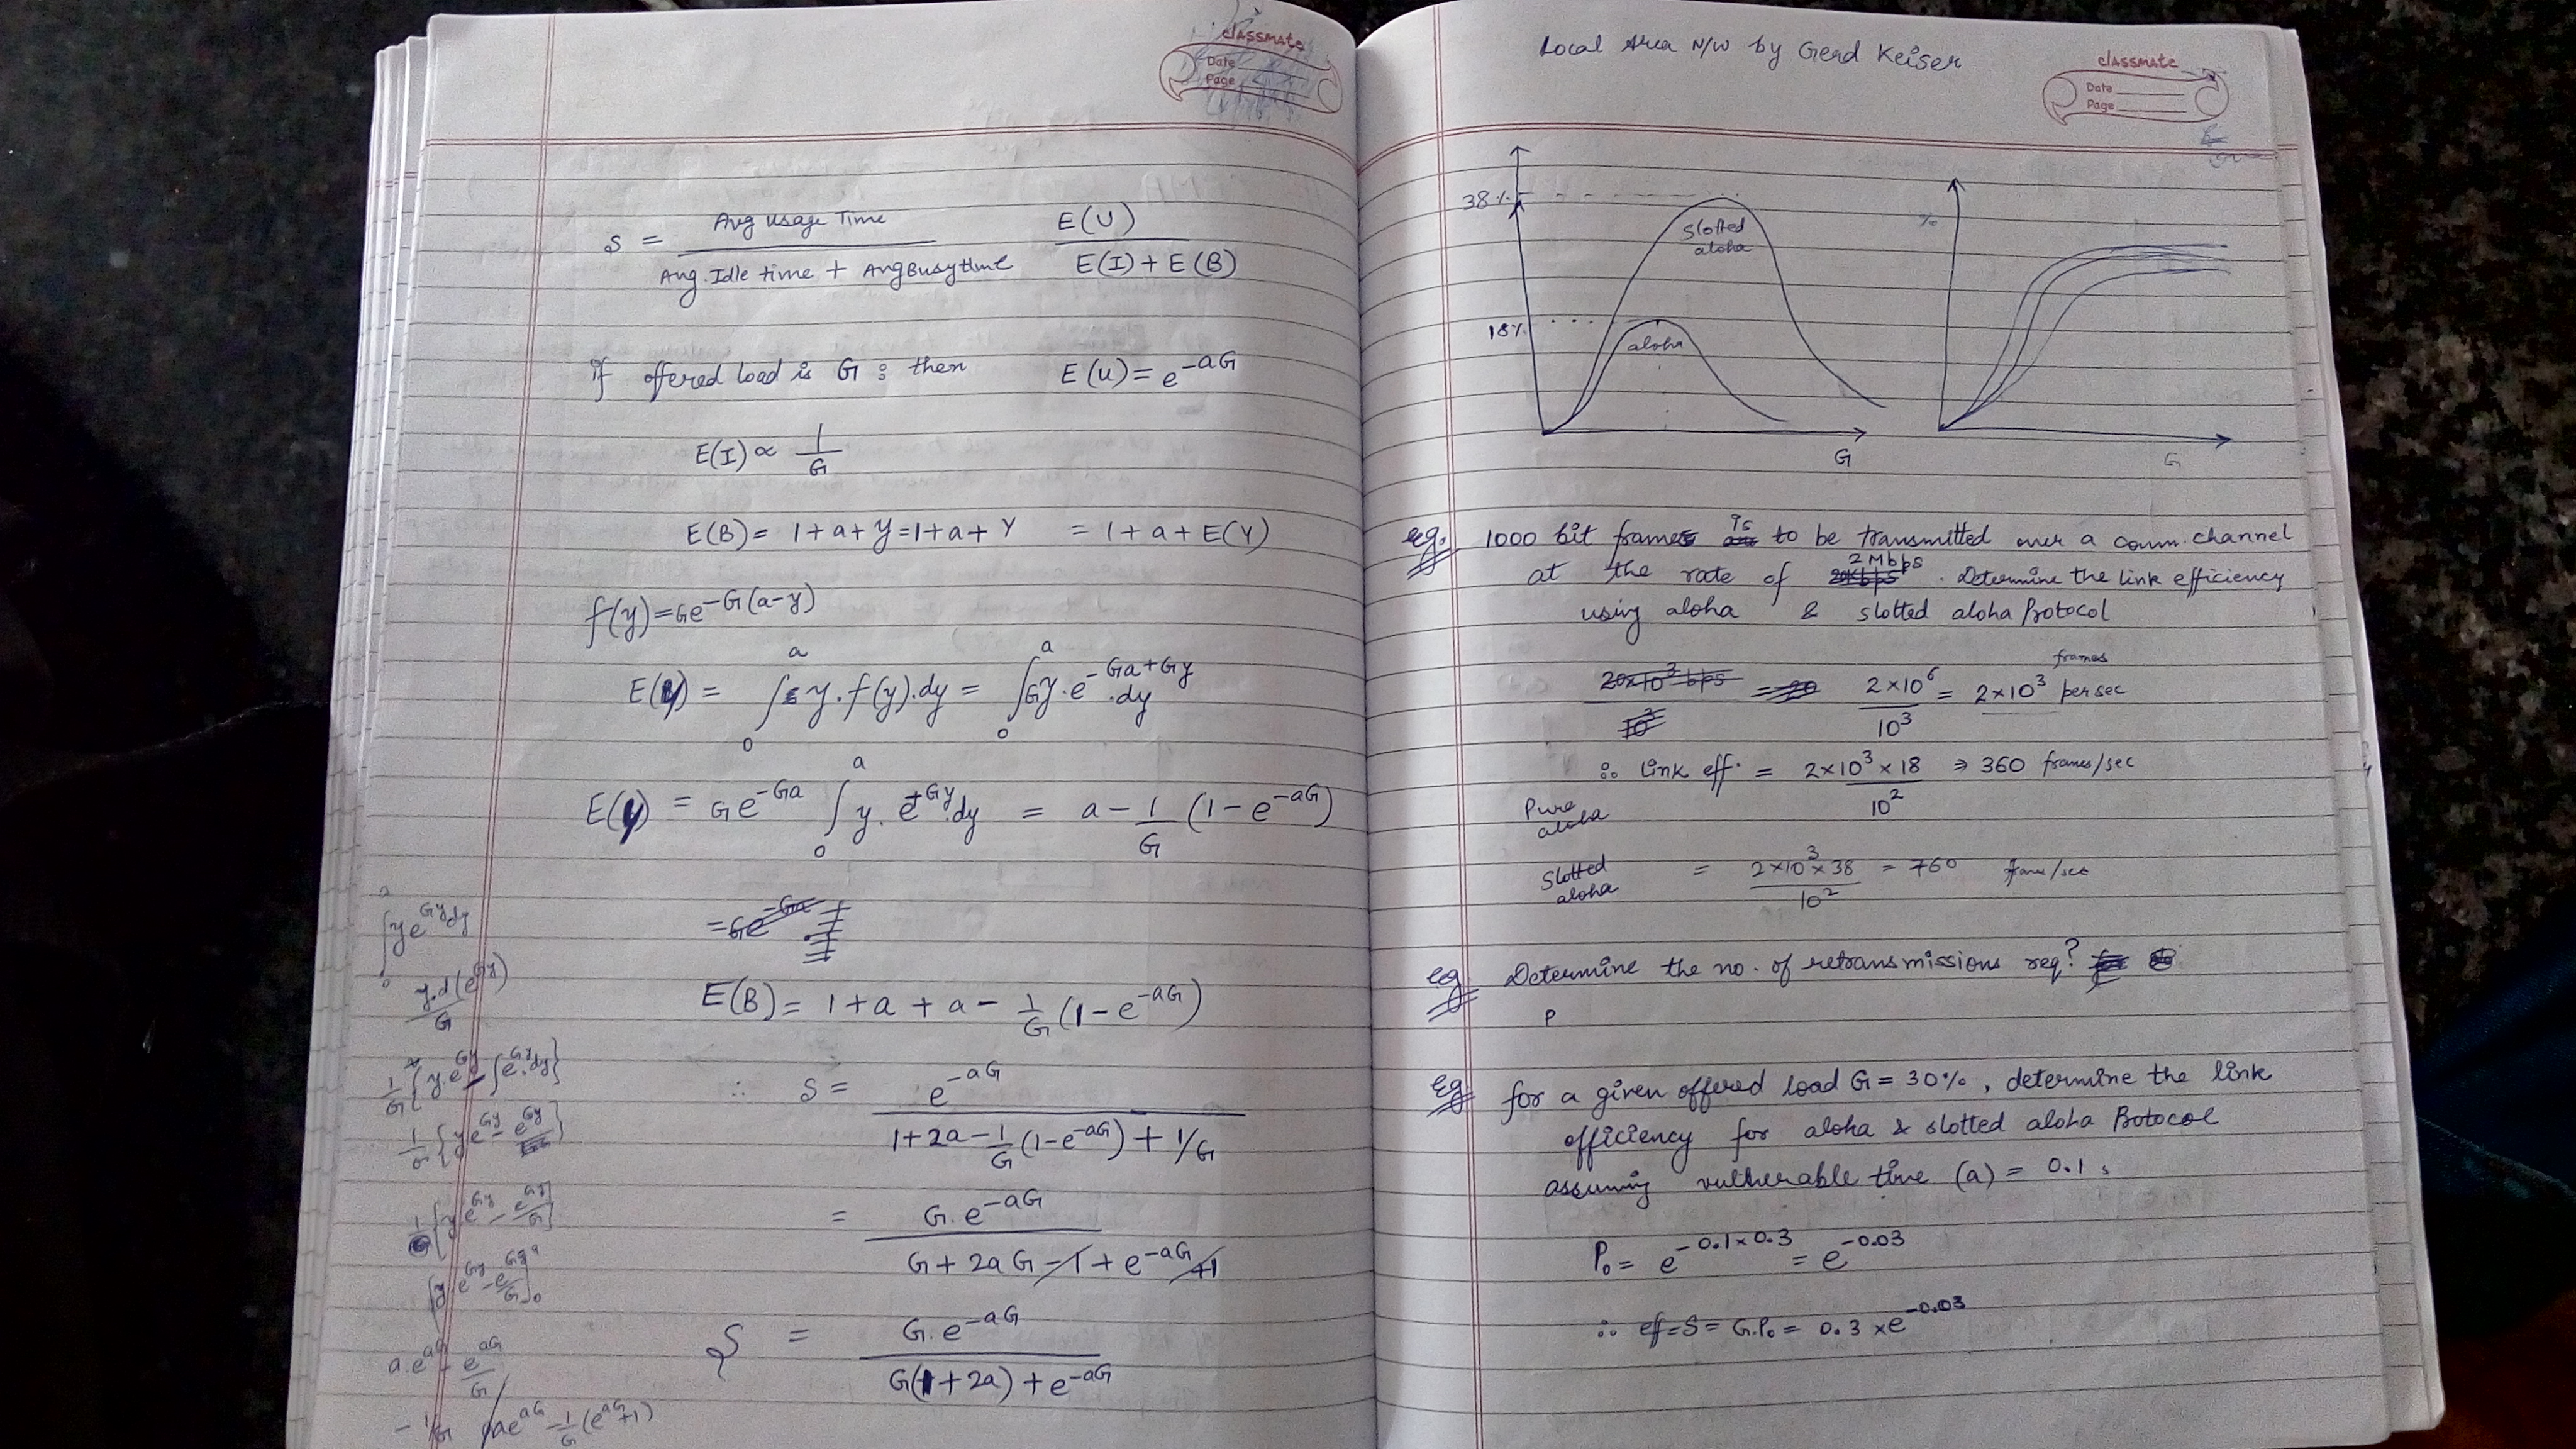 classmate
Date
Page
S = Avg Usage Time / Avg. Idle time + Avg Busy time    E(U) / E(I) + E(B)
if offered load is G : then    E(u) = e^-aG
E(I) ∝ 1/G
E(B) = 1+a+y = 1+a+Y = 1+a+E(Y)
f(y) = Ge^-G(a-y)
E(y) = ∫₀^a y.f(y).dy = ∫₀^a Gy.e^-Ga+Gy.dy
E(y) = Ge^-Ga ∫₀^a y.e^+Gy.dy = a - 1/G (1-e^-aG)
= Ge^-Ga
E(B) = 1+a+a- 1/G (1-e^-aG)
∴ S = e^-aG / 1+2a-1/G(1-e^-aG) + 1/G
= G.e^-aG / G+2aG-1+e^-aG+1
S = G.e^-aG / G(1+2a)+e^-aG
∫₀^a ye^Gy dy
y.d(e^Gy)/G
1/G {y.e^Gy - ∫e^Gy.dy}
1/G {ye^Gy - e^Gy}
1/G {ye^Gy - e^Gy/G}
[y.e^Gy - e^Gy/G]₀^a
a.e^aG - e^aG/G
- 1/G ae^aG - 1/G (e^aG+1)
Local Area N/W by Gerd Keiser
classmate
Date
Page
38%
Slotted
aloha
18%
aloha
G
%
G
eg. 1000 bit frame is to be transmitted over a comm. channel
at the rate of 2 Mbps . Determine the link efficiency
using aloha & slotted aloha Protocol
20×10³ bps / 10³ = 20    2×10⁶ / 10³ = 2×10³ frames per sec
∴ link eff. = 2×10³×18 / 10² ⇒ 360 frames/sec
Pure
aloha
Slotted
aloha = 2×10³×38 / 10² = 760 frame/sec
eg Determine the no. of retransmissions req?
P
Eg for a given offered load G = 30%, determine the link
efficiency for aloha & slotted aloha Protocol
assuming vulnerable time (a) = 0.1 s
P₀ = e^-0.1×0.3 = e^-0.03
∴ ef=S = G.P₀ = 0.3 × e^-0.03